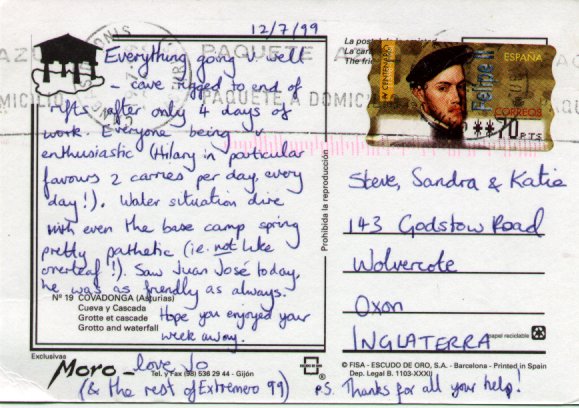 12/7/99
Everything going v. well
- cave rigged to end of
rifts after only 4 days of
work. Everyone being v
enthusiastic (Hilary in particular
favours 2 carries per day, every
day!). Water situation dire
with even the base camp spring
pretty pathetic (ie. not like
overleaf!). Saw Juan José today,
he was as friendly as always.
Hope you enjoyed your
week away.
love Jo
(& the rest of Extremero 99)
Nº 19 COVADONGA (Asturias)
Cueva y Cascada
Grotte et cascade
Grotto and waterfall
Exclusivas
Moro
Tel. y Fax (98) 536 29 44 - Gijón
Prohibida la reproducción
PAQUETE
PAQUETE A DOMICILIO
La
La cara
The frien
IV CENTENARIO
Felipe II
ESPAÑA
CORREOS
**70 PTS
Steve, Sandra & Katie
143 Godstow Road
Wolvercote
Oxon
INGLATERRA
papel reciclable
© FISA - ESCUDO DE ORO, S.A. - Barcelona - Printed in Spain
Dep. Legal B. 1103-XXXII
P.S. Thanks for all your help!